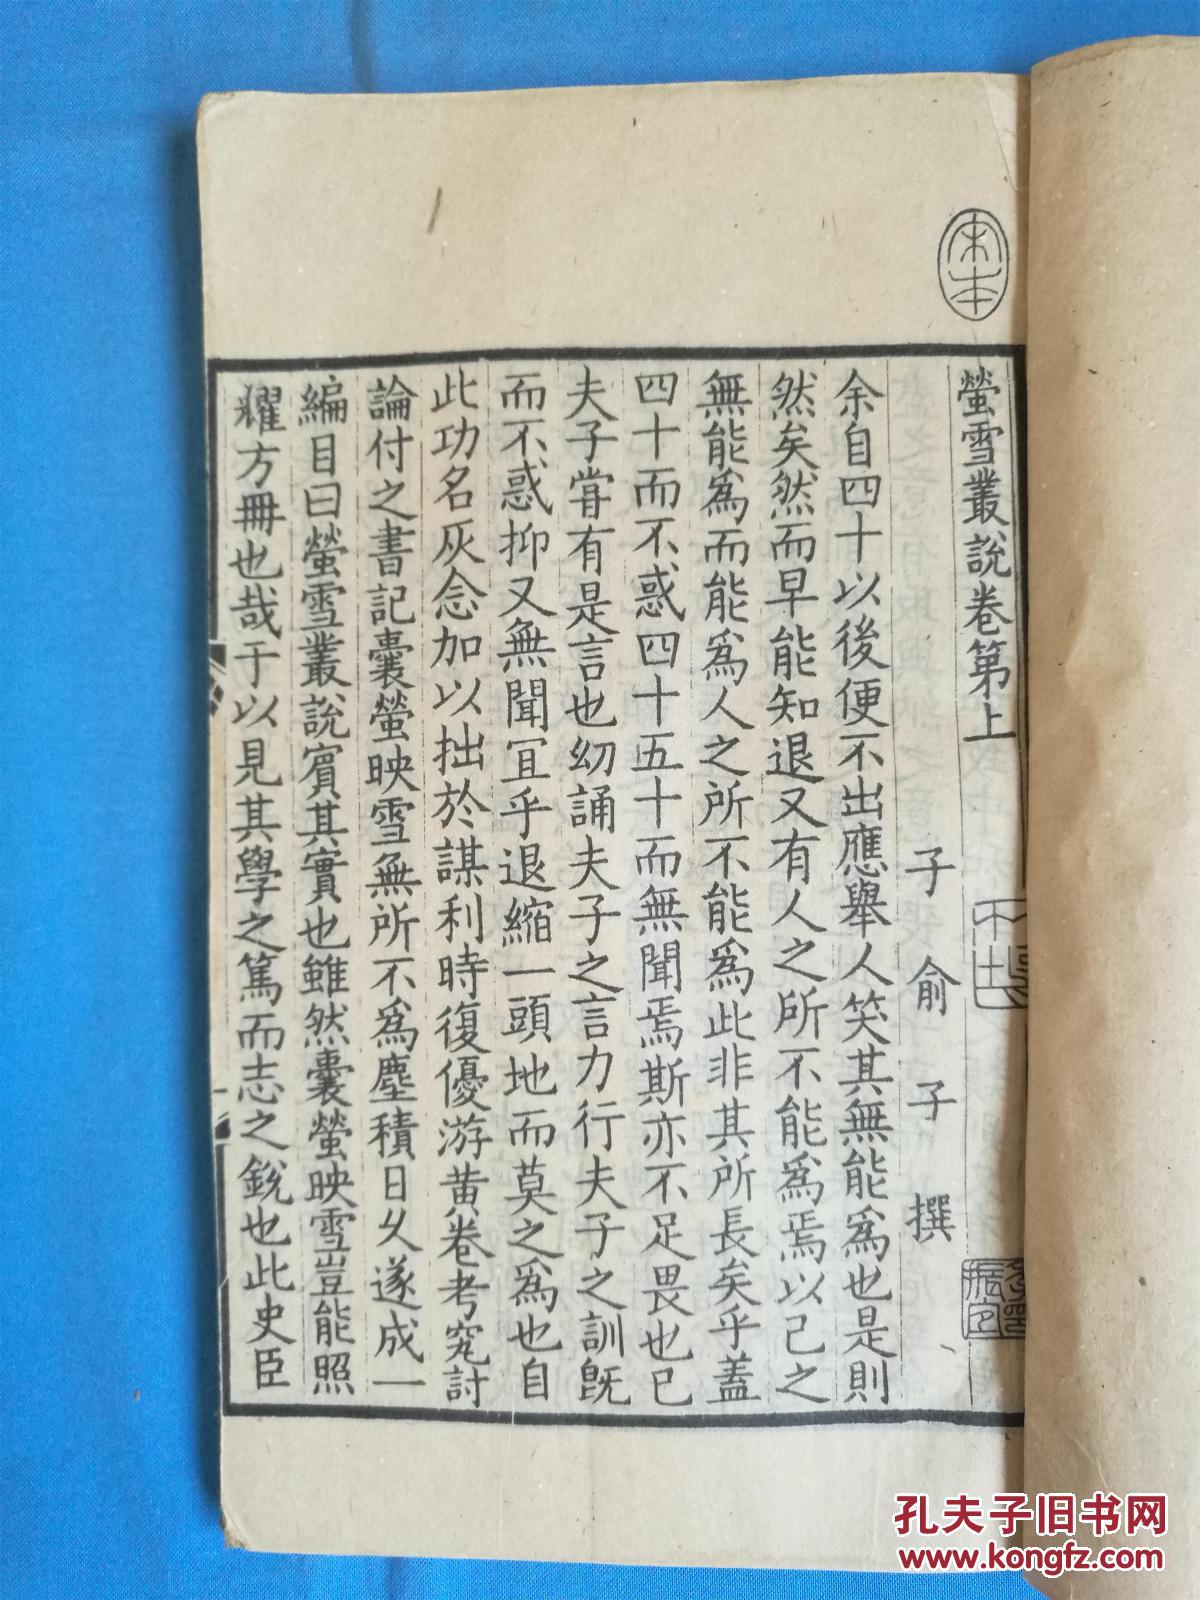 螢雪叢說卷第上
子俞子撰
余自四十以後便不出應舉人笑其無能為也是則
然矣然而早能知退又有人之所不能為焉以己之
無能為而能為人之所不能為此非其所長矣乎蓋
四十而不惑四十五十而無聞焉斯亦不足畏也已
夫子甞有是言也幼誦夫子之言力行夫子之訓旣
而不惑抑又無聞冝乎退縮一頭地而莫之為也自
此功名灰念加以拙於謀利時復優游黄卷考究討
論付之書記囊螢映雪無所不為塵積日乆遂成一
編目曰螢雪叢說賓其實也雖然囊螢映雪豈能照
燿方冊也哉于以見其學之篤而志之銳也此史臣
宋本
孔夫子旧书网
www.kongfz.com